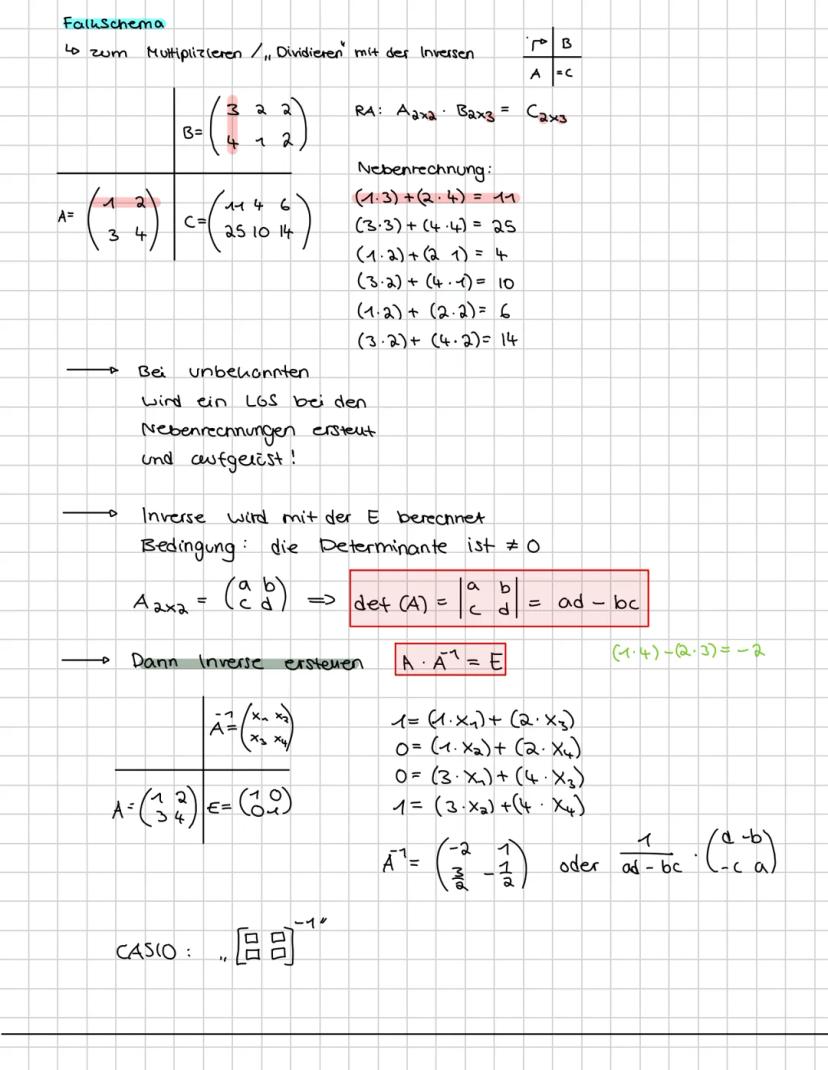 Falkschema
↳ zum Multiplizieren / „Dividieren" mit der Inversen
B
A =C
B= (3 2 2
4 1 2)
RA: A2x2 · B2x3 = C2x3
A= (1 2
3 4)
C= (11 4 6
25 10 14)
Nebenrechnung:
(1·3)+(2·4) = 11
(3·3)+(4·4) = 25
(1·2)+(2 1) = 4
(3·2)+(4·1) = 10
(1·2)+(2·2) = 6
(3·2)+(4·2) = 14
→ Bei unbekannten
wird ein LGS bei den
Nebenrechnungen erstellt
und aufgelöst!
→ Inverse wird mit der E berechnet
Bedingung: die Determinante ist ≠ 0
A2x2 = (a b
c d) => det (A) = |a b
c d| = ad - bc
→ Dann Inverse erstellen A · A⁻¹ = E
(1·4)-(2·3) = -2
A⁻¹= (x1 x2
x3 x4)
A= (1 2
3 4) E= (1 0
0 1)
1= (1·x1)+(2·x3)
0= (1·x2)+(2·x4)
0= (3·x1)+(4·x3)
1= (3·x2)+(4·x4)
A⁻¹= (-2 1
3/2 -1/2) oder 1/(ad-bc) · (d -b
-c a)
CASIO: „[□ □
□ □]⁻¹"